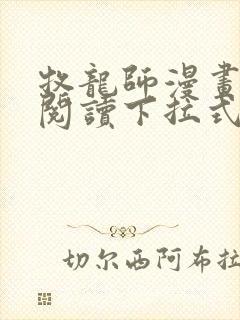 牧龍師漫畫
閱讀下拉式
切尔西阿布拉